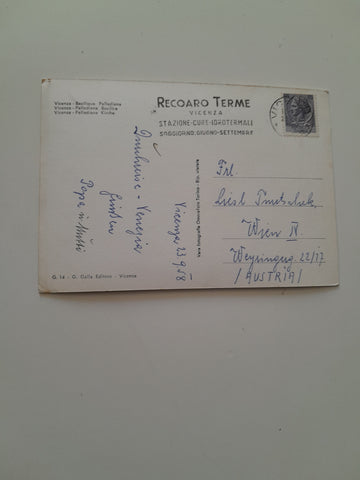 Vicenza - Basilique Palladiana
Vicenza - Palladiana Basilica
Vicenza - Palladiana Kirche
RECOARO TERME
VICENZA
STAZIONE-CURE-IDROTERMALI
SOGGIORNO, GIUGNO-SETTEMBRE
Vicenza 23.9.58
Venezia
Papa u. Mutti
Frl.
Liesl
Wien IV.
Weyringerg. 22/17
/AUSTRIA/
G. 14 - G. Galla Editore - Vicenza